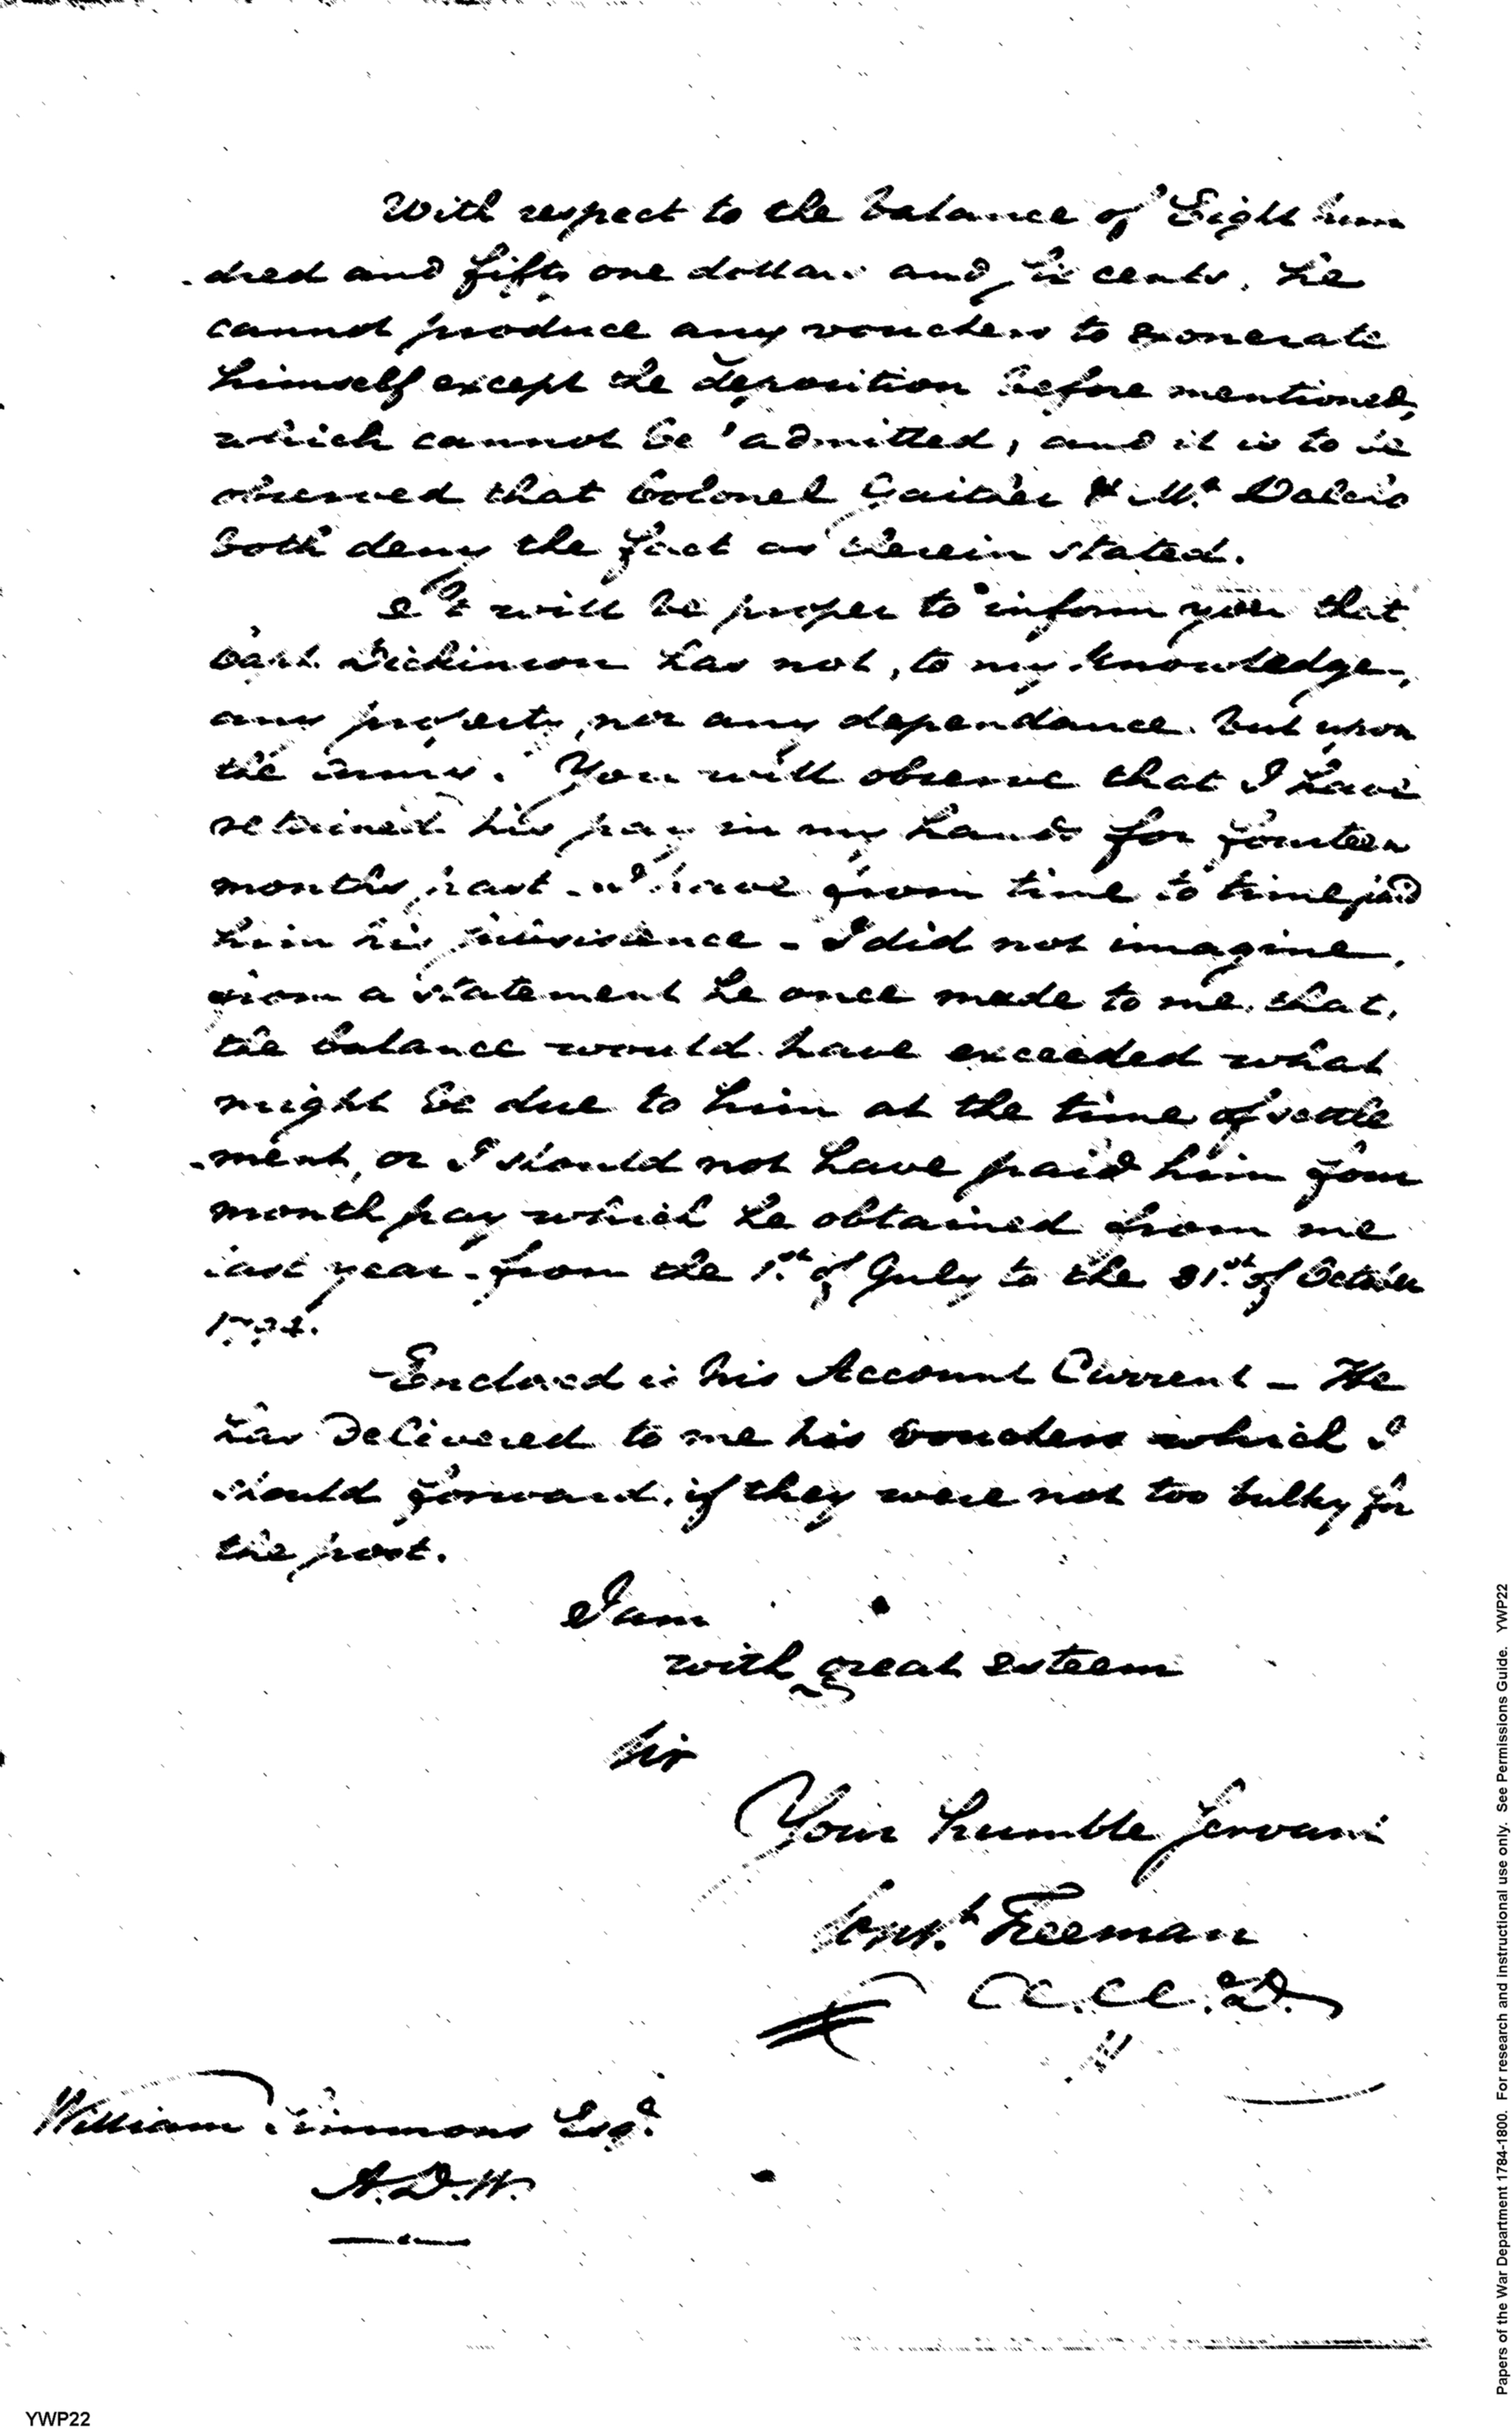 With respect to the balance of Eight hun
-dred and fifty one dollars and cents, he
cannot produce any vouchers to exonerate
himself except the deposition before mentioned,
which cannot be admitted, and it is to be
observed that Colonel Gaither & Mr.
both deny the fact as therein stated.
It will be proper to inform you that
Capt. Dickinson has not, to my knowledge,
any property, nor any dependance but upon
the army. You will observe that I have
retained his pay in my hands for fourteen
months past - & have from time to time paid
him his subsistence - I did not imagine,
from a statement he once made to me, that,
the balance would have exceeded what
might be due to him at the time of settle
-ment, or I should not have paid him four
month pay which he obtained from me
last year - from the 1.st of July to the 31.st of October
1794.
Enclosed is his Account Current - He
has delivered to me his vouchers which I
should forward, if they were not too bulky for
the post.
I am
with great esteem
Sir
Your humble Servant
Const. Freeman
William Simmons Esqr.
A.D.W.
Papers of the War Department 1784-1800. For research and instructional use only. See Permissions Guide. YWP22
YWP22